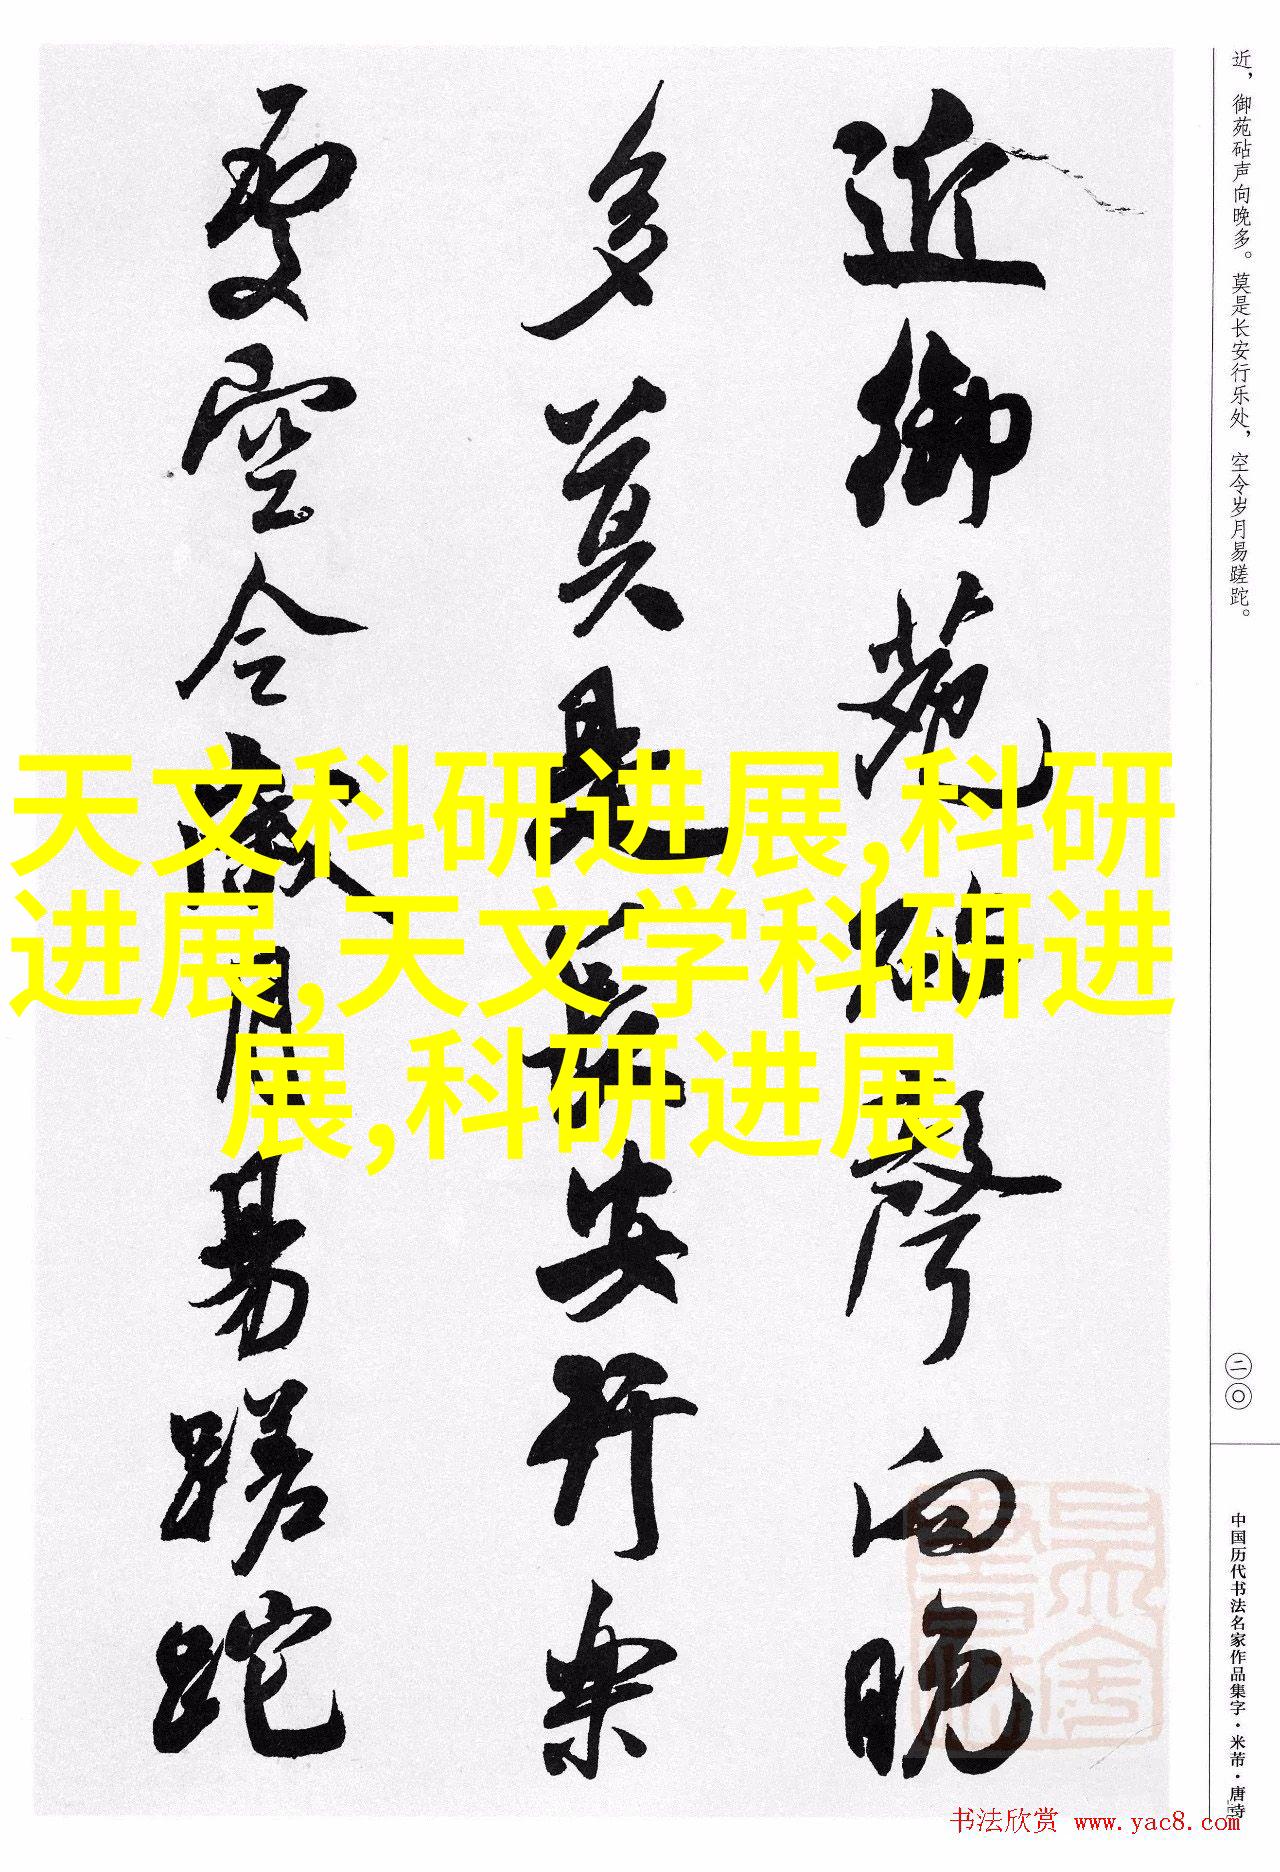 近御苑砧声向晚
多莫是长安行樂
處空令歲月易蹉跎
近，御苑砧声向晚多。莫是长安行乐处，空令岁月易蹉跎。
二〇
中国历代书法名家作品集字·米芾·唐诗
天文科研进展,科研
进展,天文学科研进
展,科研进展
书法欣赏 www.yac8.com